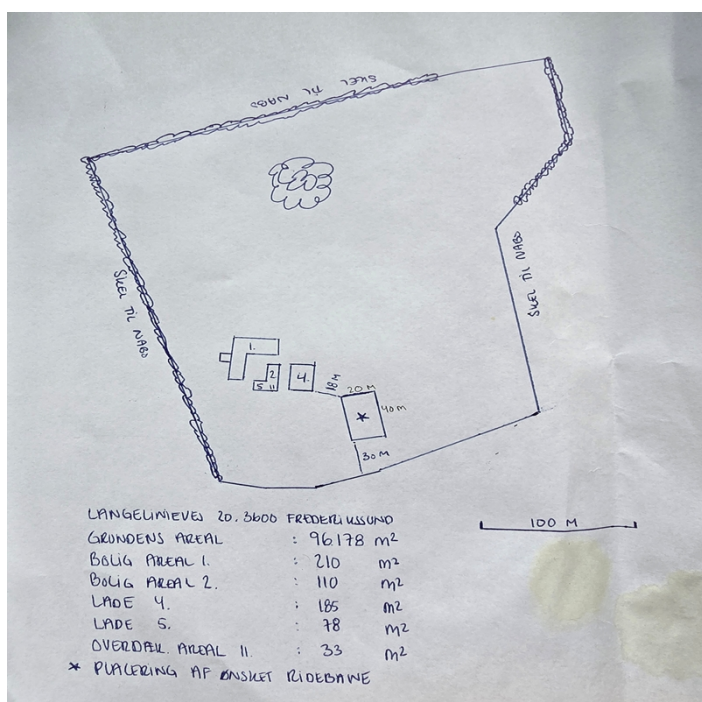 SKEL TIL NABO
SKEL TIL NABO
SKEL TIL NABO
1.
2
5
11
4.
18 M
20 M
40 M
*
30 M
LANGELINIEVEJ 20. 3600 FREDERIKSSUND
100 M
GRUNDENS AREAL : 96.178 m2
BOLIG AREAL 1. : 210 m2
BOLIG AREAL 2. : 110 m2
LADE 4. : 185 m2
LADE 5. : 78 m2
OVERDÆK. AREAL 11. : 33 m2
* PLACERING AF ØNSKET RIDEBANE